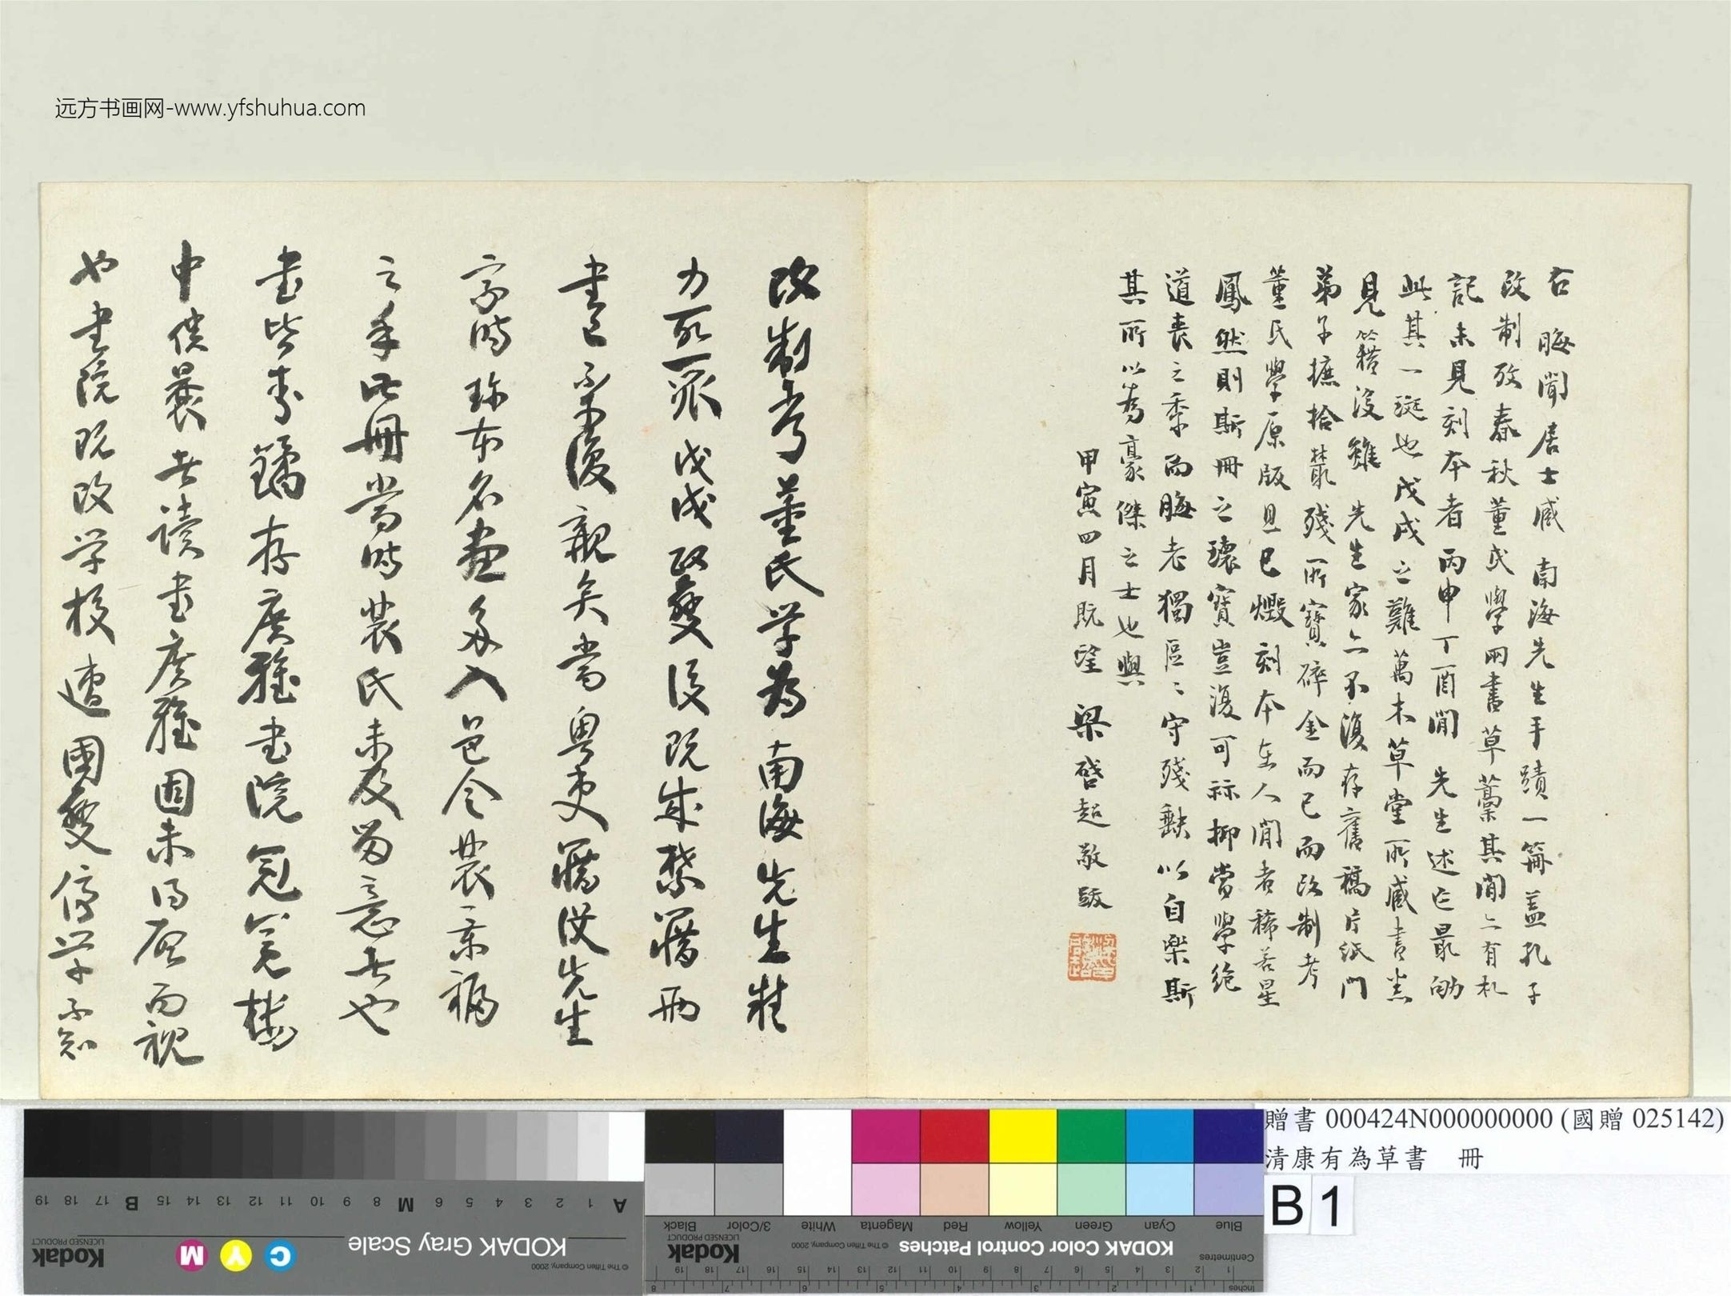 远方书画网-www.yfshuhua.com
右 晦聞居士藏 南海先生手蹟一冊蓋孔子
改制攷春秋董氏學兩書草藁其間亦有札
記未見刻本者丙申丁酉間 先生述作最劬
此其一斑也戊戌之難萬木草堂所藏書悉
見籍沒雖 先生家亦不復存舊稿片紙門
弟子摭拾叢殘所寶碎金而已而改制考
董氏學原版且已燬刻本在人間者稀若星
鳳然則斯冊之瓌寶豈復可 抑當學絕
道喪之季而晦老獨區區守殘缺以自樂斯
其所以為豪傑之士也與
甲寅四月既望 梁啓超敬跋
改制考董氏学為南海先生精
力所聚戊戌政變後既遭禁藉而
書已不復親矣當粵吏藉沒先生
家時珍本名畫多入邑令裴景福
之手此冊當時裴氏未及留意者也
書皆秀 存廣雅書院冠冕樓
中僕曩者讀書廣雅固未得啟而視
也書院既改学校遭國變停学不知
贈書 000424N000000000 (國贈 025142)
清康有為草書 冊
B 1
KODAK Gray Scale
Kodak
LICENSED PRODUCT
© The Tiffen Company, 2000
C Y M
A 1 2 3 4 5 6 M 8 9 10 11 12 13 14 15 B 17 18 19
KODAK Color Control Patches
Kodak
LICENSED PRODUCT
© The Tiffen Company, 2000
Blue Cyan Green Yellow Red Magenta White 3/Color Black
Centimetres
Inches